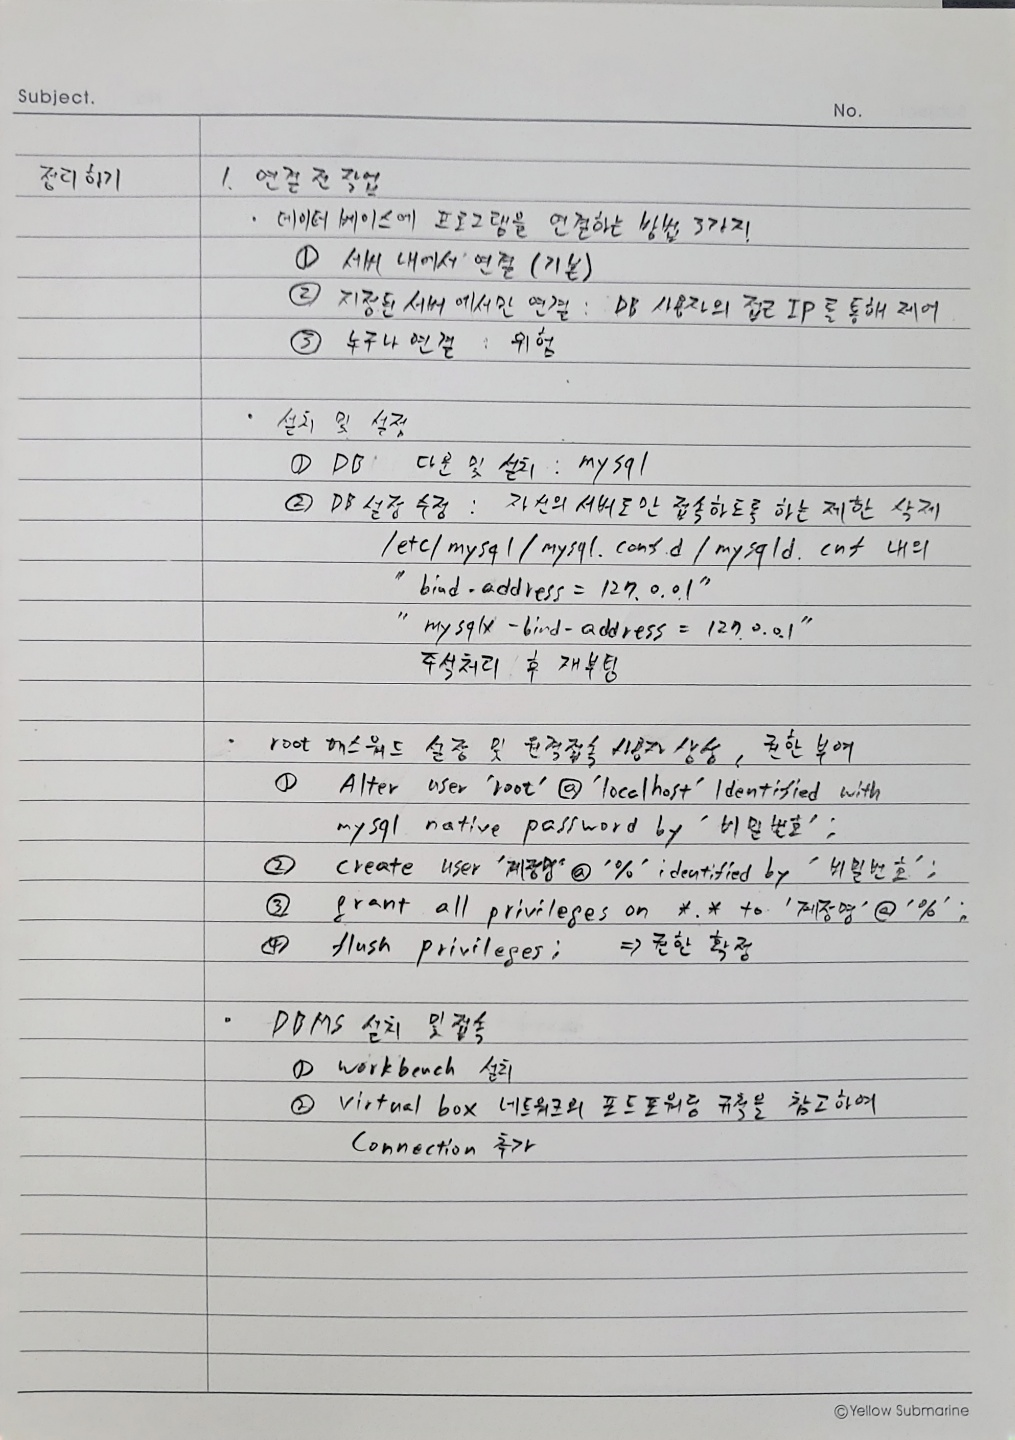 Subject.
No.
정리하기
1. 연결 전 작업
· 데이터베이스에 프로그램을 연결하는 방법 3가지
① 서버 내에서 연결 (기본)
② 지정된 서버에서만 연결 : DB 사용자의 접근 IP를 통해 제어
③ 누구나 연결 : 위험
· 설치 및 설정
① DB 다운 및 설치 : mysql
② DB 설정 수정 : 자신의 서버로만 접속하도록 하는 제한 삭제
/etc/mysql/mysql.conf.d/mysqld.cnf 내의
"bind-address = 127.0.0.1"
"mysqlx-bind-address = 127.0.0.1"
주석처리 후 재부팅
· root 패스워드 설정 및 원격접속 사용자 생성, 권한 부여
① Alter user 'root'@'localhost' Identified with
mysql native password by '비밀번호';
② create user '계정명'@'%' identified by '비밀번호';
③ grant all privileges on *.* to '계정명'@'%';
④ flush privileges; => 권한 확정
· DBMS 설치 및 접속
① workbench 설치
② virtual box 네트워크의 포트포워딩 규칙을 참고하여
Connection 추가
©Yellow Submarine